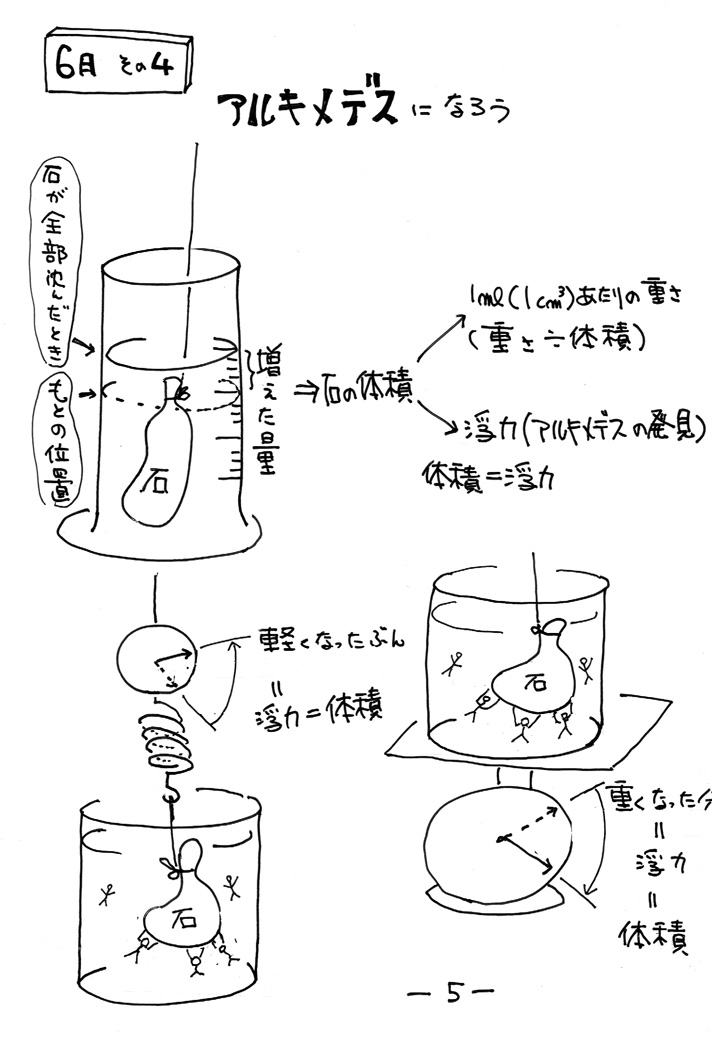 6月 その4
アルキメデスになろう
石が全部沈んだとき
もとの位置
増えた量
石
⇒石の体積
1ml(1cm³)あたりの重さ
(重さ÷体積)
浮力(アルキメデスの発見)
体積=浮力
軽くなったぶん
=
浮力=体積
石
石
重くなった分
=
浮力
=
体積
-5-